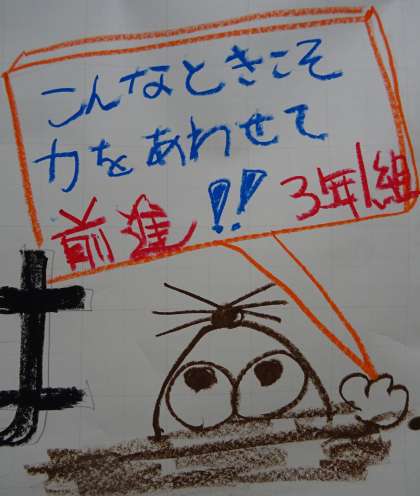 こんなときこそ
力をあわせて
前進!! 3年1組